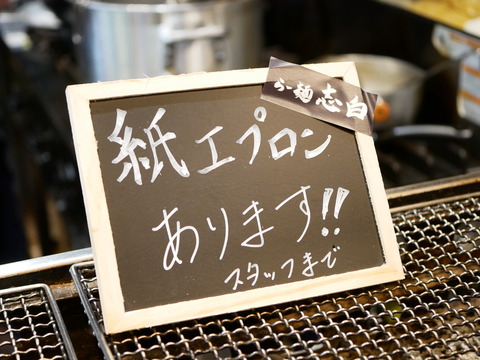 らー麺 志白
紙エプロン
あります!!
スタッフまで